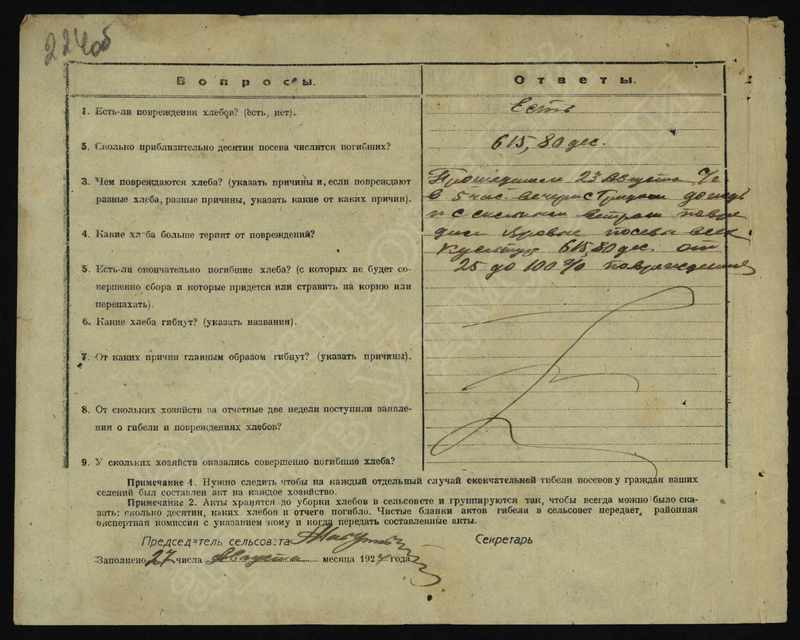 224об
Вопросы.
Ответы.
1. Есть-ли повреждения хлебов? (есть, нет).
Есть
5. Сколько приблизительно десятин посева числится погибших?
615,80 дес.
3. Чем повреждаются хлеба? (указать причины и, если повреждают
разные хлеба, разные причины, указать какие от каких причин).
4. Какие хлеба больше терпят от повреждений?
5. Есть-ли окончательно погибшие хлеба? (с которых не будет со-
вершенно сбора и которые придется или стравить на корню или
перепахать).
6. Какие хлеба гибнут? (указать названия).
7. От каких причин главным образом гибнут? (указать причины).
8. От скольких хозяйств на отчетные две недели поступили заявле-
ния о гибели и повреждениях хлебов?
9. У скольких хозяйств оказались совершенно погибшие хлеба?
23 Августа с/г
в 5 час. вечера с Градом дождь
и с сильным ветром повре
дил яровые посевы всех
культур 615,80 дес. от
25 до 100% повреждения
Примечание 1. Нужно следить чтобы на каждый отдельный случай окончательной гибели посевов у граждан ваших
селений был составлен акт на каждое хозяйство.
Примечание 2. Акты хранятся до уборки хлебов в сельсовете и группируются так, чтобы всегда можно было ска-
зать: сколько десятин, каких хлебов и отчего погибло. Чистые бланки актов гибели в сельсовет передает, районная
экспертная комиссия с указанием кому и когда передать составленные акты.
Председатель сельсовета
Секретарь
Заполнено 27 числа Августа месяца 192 года